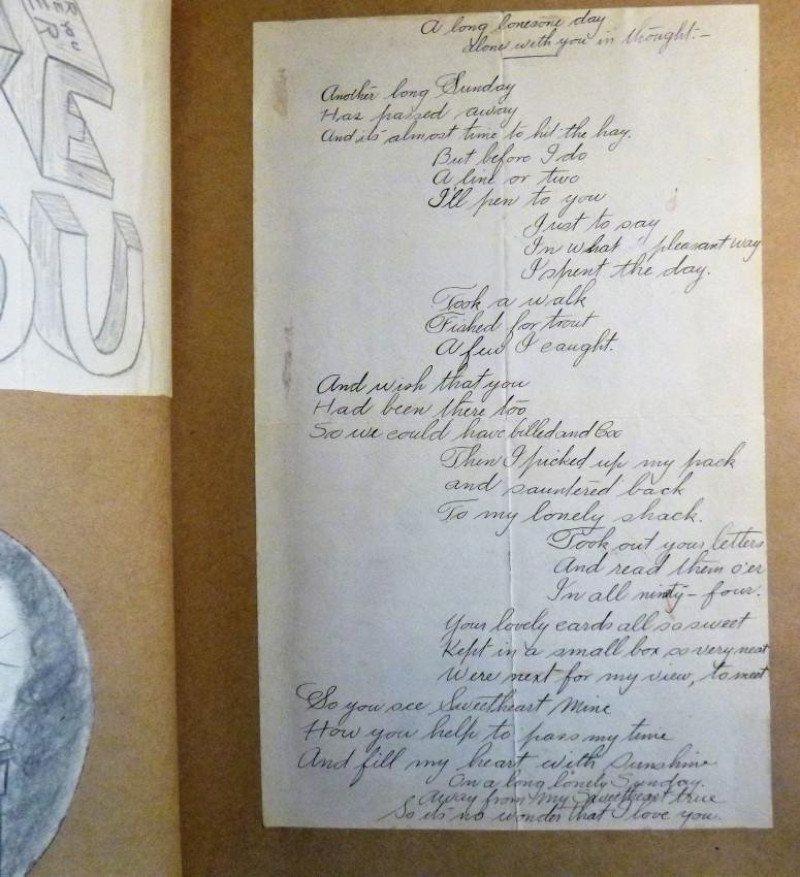 A long lonesome day
Alone with you in thought:-
Another long Sunday
Has passed away
And its almost time to hit the hay.
But before I do
A line or two
I'll pen to you
Just to say
In what pleasant way
I spent the day.
Took a walk
Fished for trout
A few I caught.
And wish that you
Had been there too
So we could have billed and Coo
Then I picked up my pack
and sauntered back
To my lonely shack.
Took out your letters
And read them o'er
In all ninty-four.
Your lovely cards all so sweet
Kept in a small box so very neat
Were next for my view, to meet
So you see Sweetheart Mine
How you help to pass my time
And fill my heart with sunshine
On a long lonely Sunday.
Away from my Sweetheart true
So its no wonder that I love you.
OU